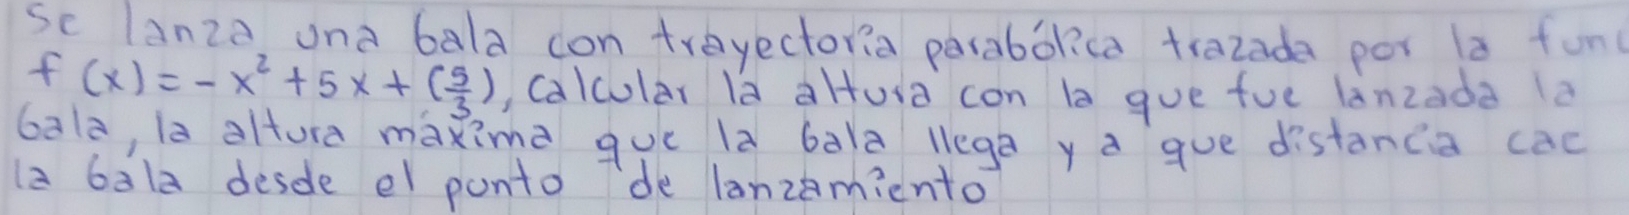 Se lanza una bala con trayectoria parabólica trazada por la func
f(x) = -x² + 5x + (5/3), calcular la altura con la que fue lanzada la
bala, la altura máxima que la bala llega y a que distancia cae
la bala desde el punto de lanzamiento